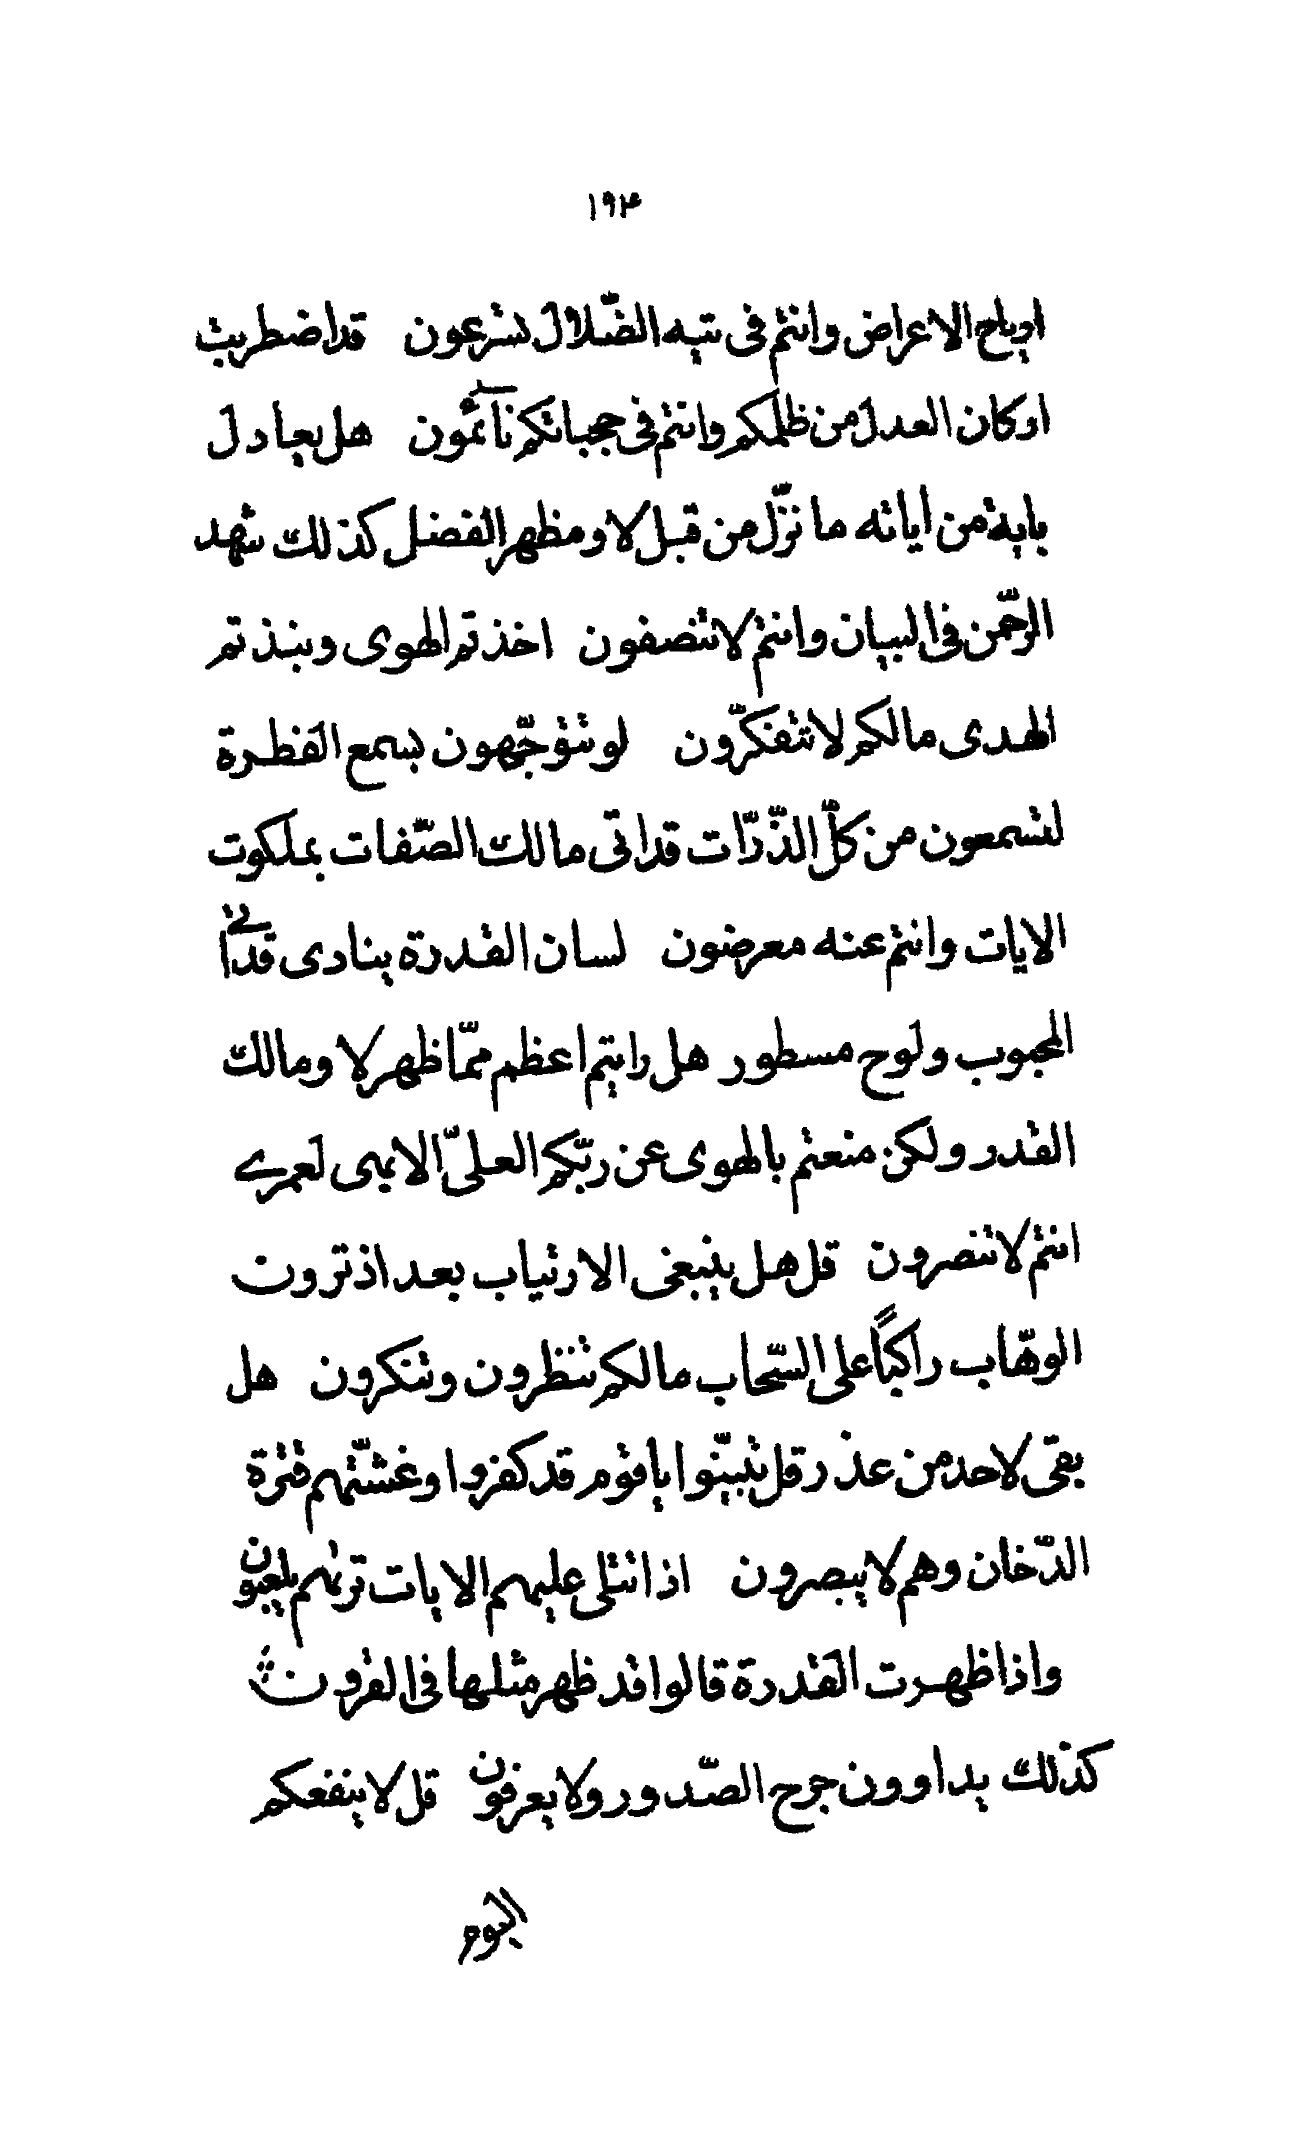 ۱۹۴
ارياح الاعراض وانتم فى تيه الضّلال تسرعون قد اضطربت
اركان العدل من ظلمكم وانتم فى حجباتكم نآئمون هل يعادل
باية من آياته ما نزّل من قبل لا ومظهر الفضل كذلك شهد
الرّحمن فى البيان وانتم لاتنصفون اخذتم الهوى ونبذتم
الهدى مالكم لاتتفكّرون لو تتوجّهون بسمع الفطرة
لتسمعون من كلّ الذّرّات قد اتى مالك الصّفات بملكوت
الايات وانتم عنه معرضون لسان القدرة ينادى قد اتى
المحبوب ولوح مسطور هل رايتم اعظم ممّا ظهر لا ومالك
القدر ولكن منعتم بالهوى عن ربّكم العلىّ الابهى لعمرے
انتم لاتنصرون قل هل ينبغى الارتياب بعد اذ ترون
الوهّاب راكباً على السّحاب مالكم تنظرون وتنكرون هل
بقى لاحد من عذر قل تبيّنوا ياقوم قد كفروا وغشّتهم قترة
الدّخان وهم لايبصرون اذا تتلى عليهم الايات تريهم يلعبون
واذا ظهرت القدرة قالوا قد ظهر مثلها فى القرون
كذلك يداوون جرح الصّدور ولا يعرفون قل لاينفعكم
اليوم